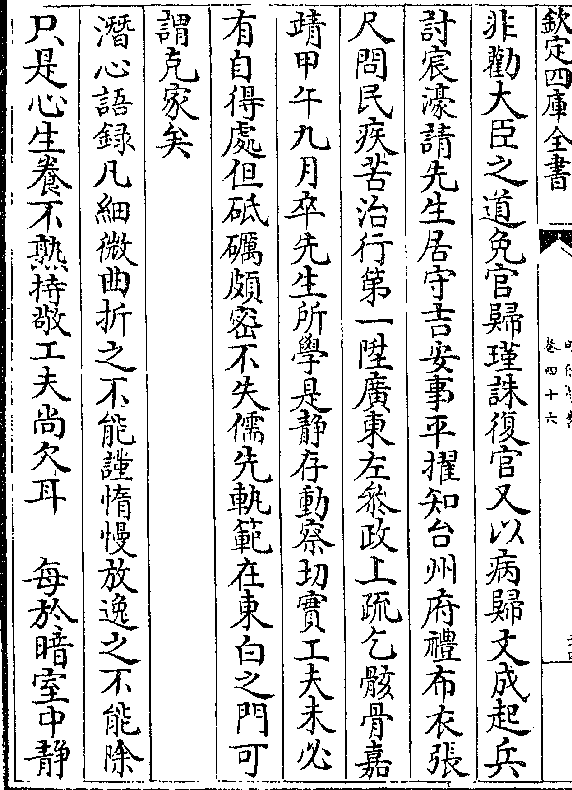 欽定四庫全書
卷四十六
非勸大臣之道免官歸瑾誅復官又以病歸文成起兵
討宸濠請先生居守吉安事平擢知台州府禮布衣張
尺問民疾苦治行第一陞廣東左叅政上疏乞骸骨嘉
靖甲午九月卒先生所學是静存動察切實工夫未必
有自得處但砥礪頗密不失儒先軌範在東白之門可
謂克家矣
潛心語録凡細微曲折之不能謹惰慢放逸之不能除
只是心生養不熟持敬工夫尚欠耳　每於暗室中静